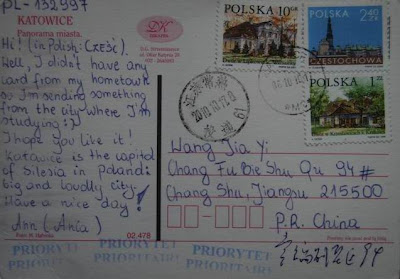 PL-132997
KATOWICE
Panorama miasta.
Hi! (in Polish: CZEŚĆ).
Well, I didn't have any
card from my hometown
so I'm sending something
from the city where I'm
studying :)
I hope you like it!
Katowice is the capital
of Silesia in Poland:
big and loudly city.
Have a nice day!
Ann (Ania)
02.478
DK
POLSKA 10 gr
POLSKA 2,40 ZŁ
CZĘSTOCHOWA
POLSKA 1 zł
2010.12.9
Wang Jia Yi
Chang Fu Bie Shu Qu 94#
Chang Shu, Jiangsu 215500
P.R. China
PRIORYTET
PRIORITAIRE
PRIORYTET
PRIORITAIRE
PRIORYTET
PRIORITAIRE